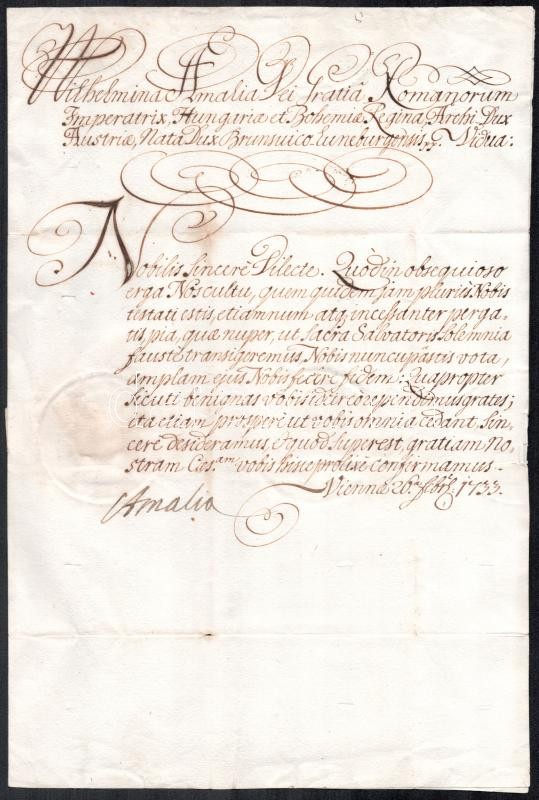 Wilhelmina Amalia Dei Gratiâ Romanorum
Imperatrix, Hungariæ et Bohemiæ Regina, Archi-Dux
Austriæ, Nata Dux Brunsvico Luneburgensis, Vidua:
Nobilis Sincerè Dilecte. Quòd in obsequioso
erga Nos cultu, quem quidem jam pluriès Nobis
testati estis, etiamnum atq, incessanter perga-
tis, pia, quæ nuper, ut Sacra Salvatoris Solemnia
faustè transigeremus Nobis nuncupâstis vota,
amplam ejus Nobis fecêre fidem: Quapropter
sicuti benignas vobis idcircò rependimus grates;
ita etiam prosperè ut vobis omnia cedant, sin-
cerè desideramus, et quod superest, gratiam No-
stram Cæs.am vobis hisce prolixè confirmamus.
Viennæ 26. Febr: 1733.
Amalia